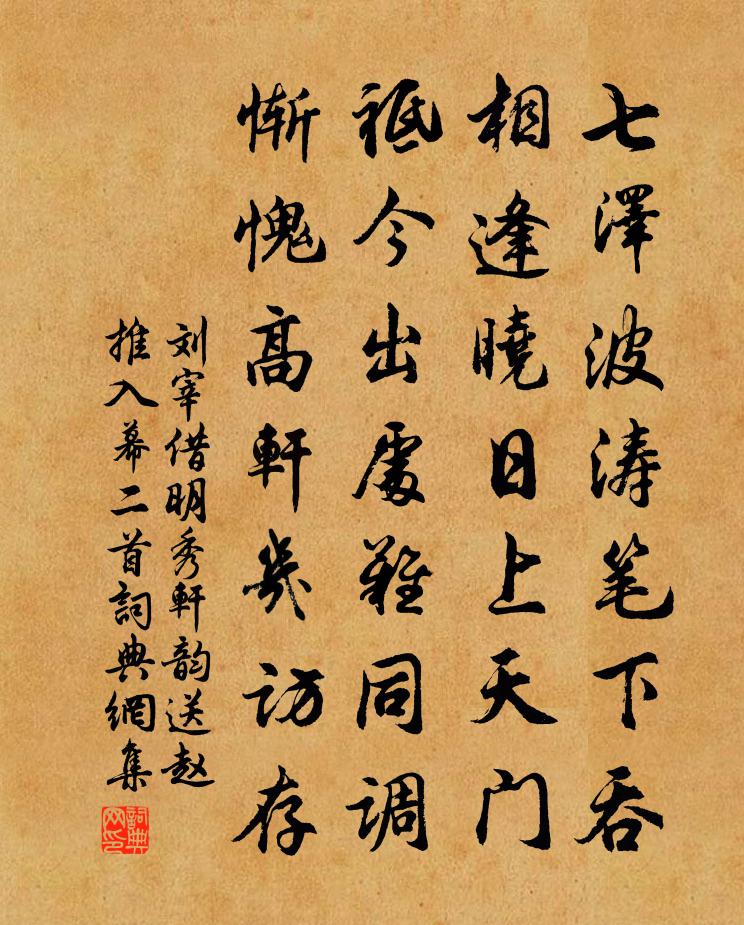 七澤波涛笔下吞
相逢曉日上天门
祗今出處難同调
惭愧高軒幾访存
刘宰借明秀軒韵送赵
推入幕二首詞典網集
詞典网印